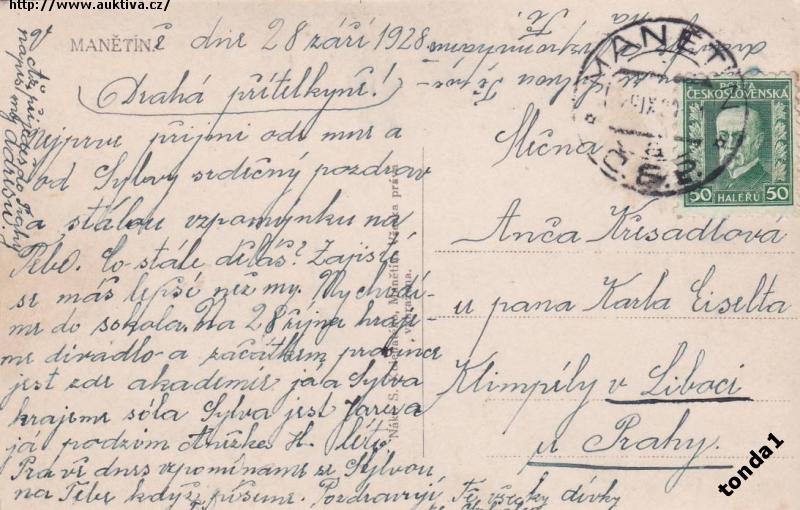 http://www.auktiva.cz/
MANĚTÍN. dne 28 září 1928.
Drahá přítelkyně!
Nejprve přijmi ode mne a
od Sylvy srdečný pozdrav
a stálou vzpomínku na
Tebe. Co stále děláš? Zajisté
se máš lepší než my. My chodí-
me do sokola. Na 28 října hraje-
me divadlo a začátkem prosince
jest zde akademie já a Sylva
hrajeme sóla Sylva jest
já podzim Anežka H. léto
Právě dnes vzpomínáme se Sylvou
na Tebe když píšeme. Pozdravují Tě všecky dívky
Až přijedeš do Prahy
napiš mi Adresu.
MANĚTÍN
Č.S.P.
POŠTA
ČESKOSLOVENSKÁ
50 HALÉŘŮ 50
Slečna
Anča Křisadlová
u pana Karla Eiselta
Klimpély v Liboci
u Prahy.
Manětín. Všecka práva
vyhrazena.
tonda1